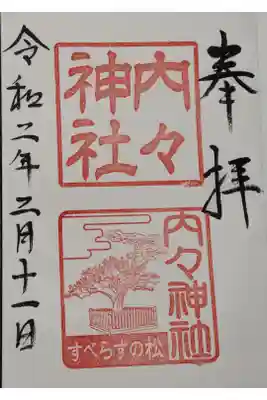 奉拝
内々
神社
内々神社
すべらすの松
令和二年二月十一日